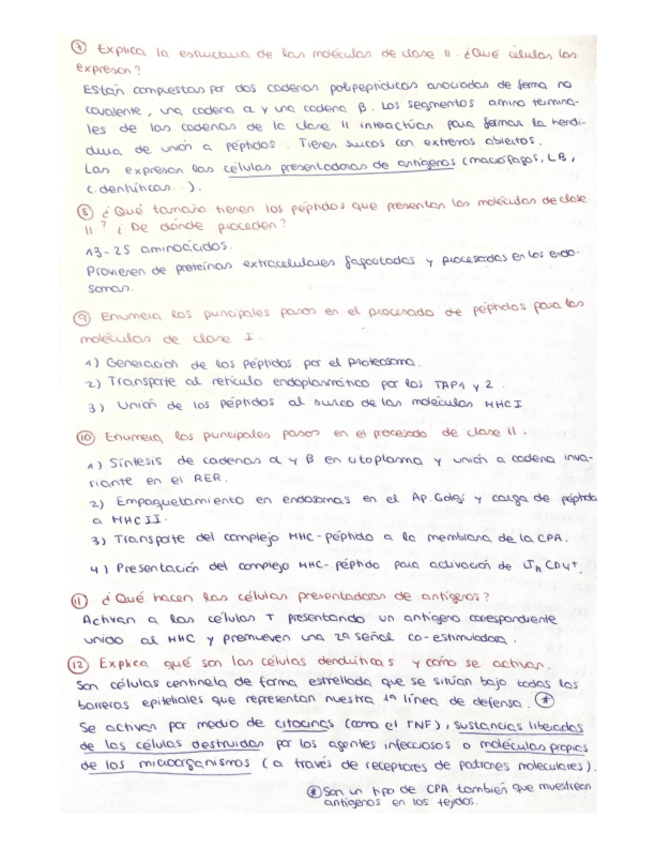 ⑦ Explica la estructura de las moléculas de clase II. ¿Qué células las
expresan?
Están compuestas por dos cadenas polipeptídicas asociadas de forma no
covalente, una cadena α y una cadena β. Los segmentos amino termina-
les de las cadenas de la clase II interactúan para formar la hendi-
dura de unión a péptidos. Tienen surcos con extremos abiertos.
Las expresan las células presentadoras de antígenos (macrófagos, LB,
c. dentríticas...).
⑧ ¿Qué tamaño tienen los péptidos que presentan las moléculas de clase
II? ¿De dónde proceden?
13-25 aminoácidos.
Provienen de proteínas extracelulares fagocitadas y procesadas en los endo-
somas.
⑨ Enumera los principales pasos en el procesado de péptidos para las
moléculas de clase I.
1) Generación de los péptidos por el proteasoma.
2) Transporte al retículo endoplasmático por los TAP1 y 2.
3) Unión de los péptidos al surco de las moléculas MHC I
⑩ Enumera los principales pasos en el procesado de clase II.
1) Síntesis de cadenas α y β en citoplasma y unión a cadena inva-
riante en el RER.
2) Empaquetamiento en endosomas en el Ap. Golgi y carga de péptido
a MHC II.
3) Transporte del complejo MHC-péptido a la membrana de la CPA.
4) Presentación del complejo MHC-péptido para activación de Th CD4+.
⑪ ¿Qué hacen las células presentadoras de antígenos?
Activan a las células T presentando un antígeno correspondiente
unido al MHC y promueven una 2ª señal co-estimuladora.
⑫ Explica qué son las células dendríticas y cómo se activan.
Son células centinela de forma estrellada que se sitúan bajo todas las
barreras epiteliales que representan nuestra 1ª línea de defensa. (*)
Se activan por medio de citocinas (como el TNF), sustancias liberadas
de las células destruidas por los agentes infecciosos o moléculas propias
de los microorganismos (a través de receptores de patrones moleculares).
(*) Son un tipo de CPA también que muestrean
antígenos en los tejidos.